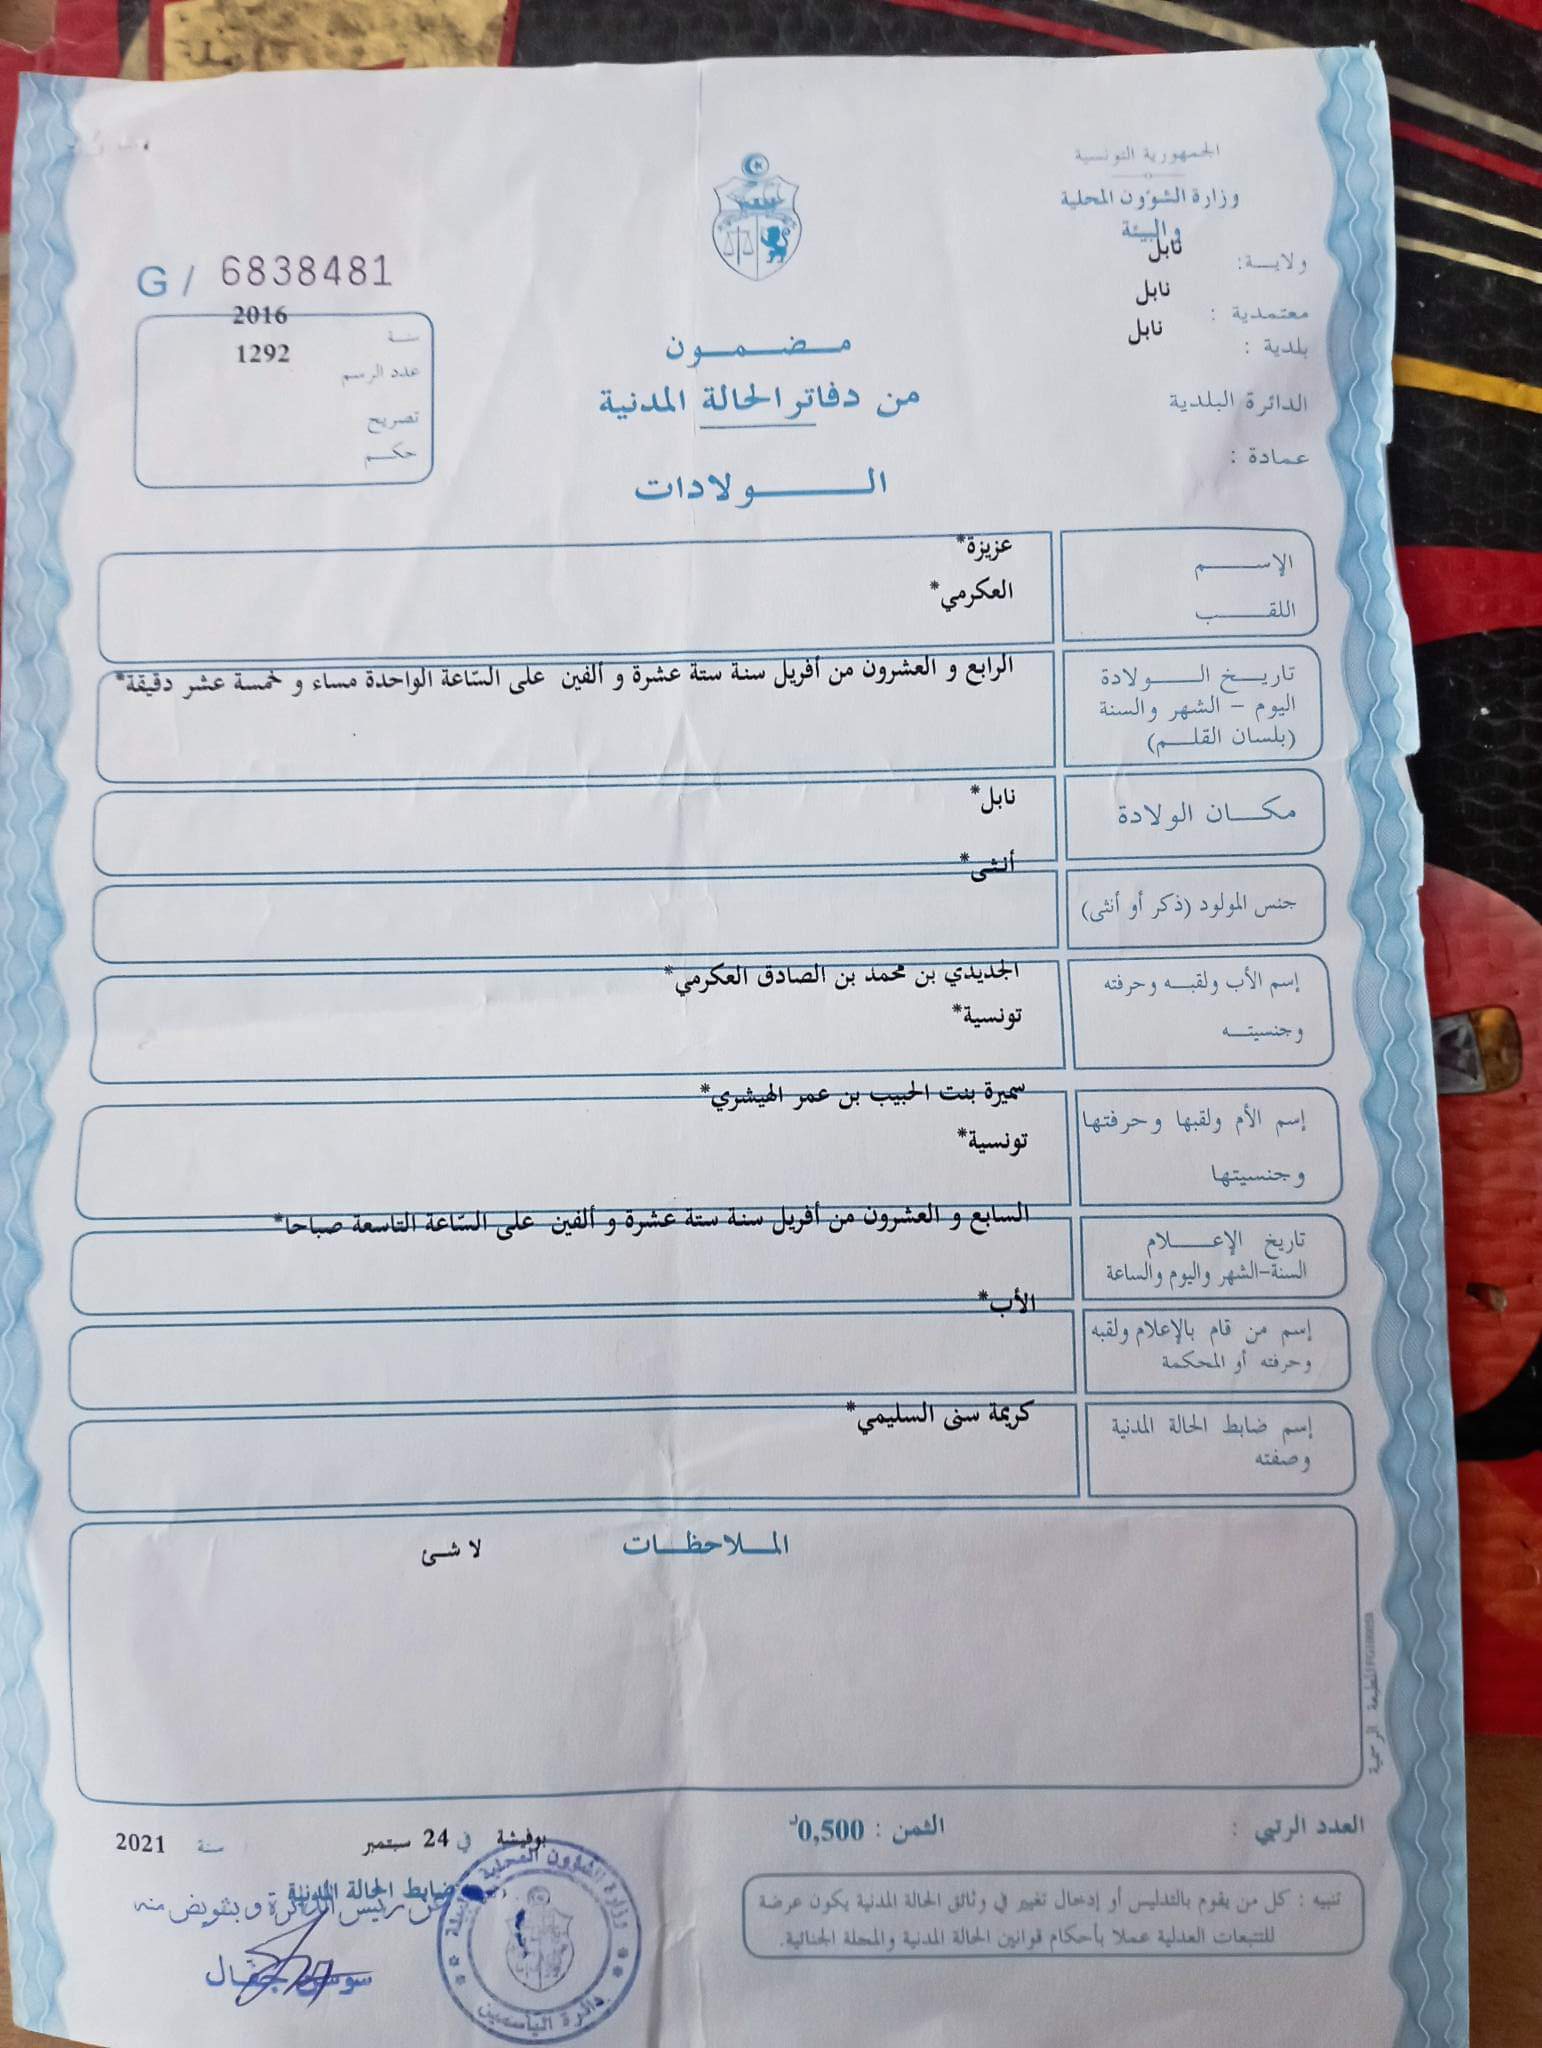 الجمهورية التونسية
وزارة الشؤون المحلية
والبيئة
ولايـــة: نابل
معتمدية : نابل
بلدية : نابل
الدائرة البلدية
عمادة :
G / 6838481
سنة 2016
عدد الرسم 1292
تصريح
حكم
مضمون
من دفاتر الحالة المدنية
الولادات
الإسم عزيزة*
اللقب العكرمي*
تاريخ الولادة
اليوم - الشهر والسنة
(بلسان القلم)
الرابع و العشرون من أفريل سنة ستة عشرة و ألفين على السّاعة الواحدة مساء و خمسة عشر دقيقة*
مكان الولادة نابل*
جنس المولود (ذكر أو أنثى) أنثى*
إسم الأب ولقبه وحرفته
وجنسيته
الجديدي بن محمد بن الصادق العكرمي*
تونسية*
إسم الأم ولقبها وحرفتها
وجنسيتها
سميرة بنت الحبيب بن عمر الهيشري*
تونسية*
تاريخ الإعلام
السنة-الشهر واليوم والساعة
السابع و العشرون من أفريل سنة ستة عشرة و ألفين على السّاعة التاسعة صباحا*
إسم من قام بالإعلام ولقبه
وحرفته أو المحكمة
الأب*
إسم ضابط الحالة المدنية
وصفته
كريمة سنى السليمي*
الملاحظات لا شئ
المطبعة الرسمية
العدد الرتبي :
الثمن : 0,500د
بوفيشة في 24 سبتمبر سنة 2021
ضابط الحالة المدنية
عن رئيس الدائرة و بتفويض منه
تنبيه : كل من يقوم بالتدليس أو إدخال تغيير في وثائق الحالة المدنية يكون عرضة
للتتبعات العدلية عملا بأحكام قوانين الحالة المدنية والمجلة الجنائية.
دائرة الياسمين